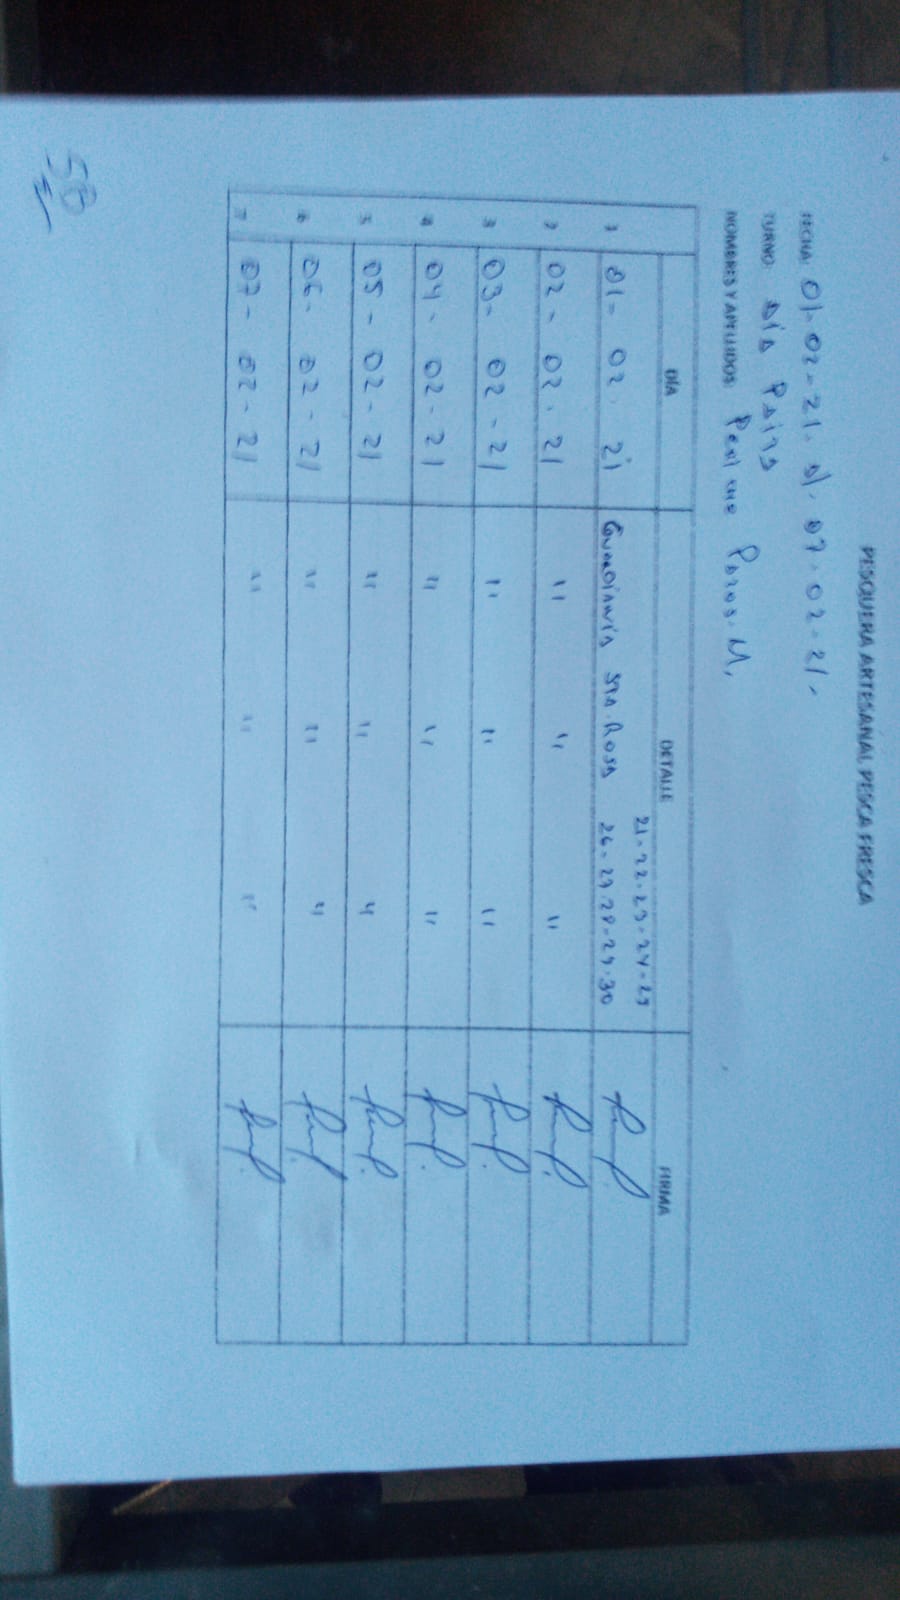 PESQUERA ARTESANAL PESCA FRESCA
FECHA: 01-02-21. al. 07-02-21.
TURNO: Día
NOMBRES Y APELLIDOS: M.
DÍA DETALLE FIRMA
21-22-23-24-25
1 01- 02. 21 Guardianía Sta. Rosa 26-27-28-29-30
2 02- 02. 21 " " "
3 03- 02-21 " " "
4 04- 02-21 " " "
5 05-02-21 " " "
6 06- 02-21 " " "
7 07- 02-21 " " "